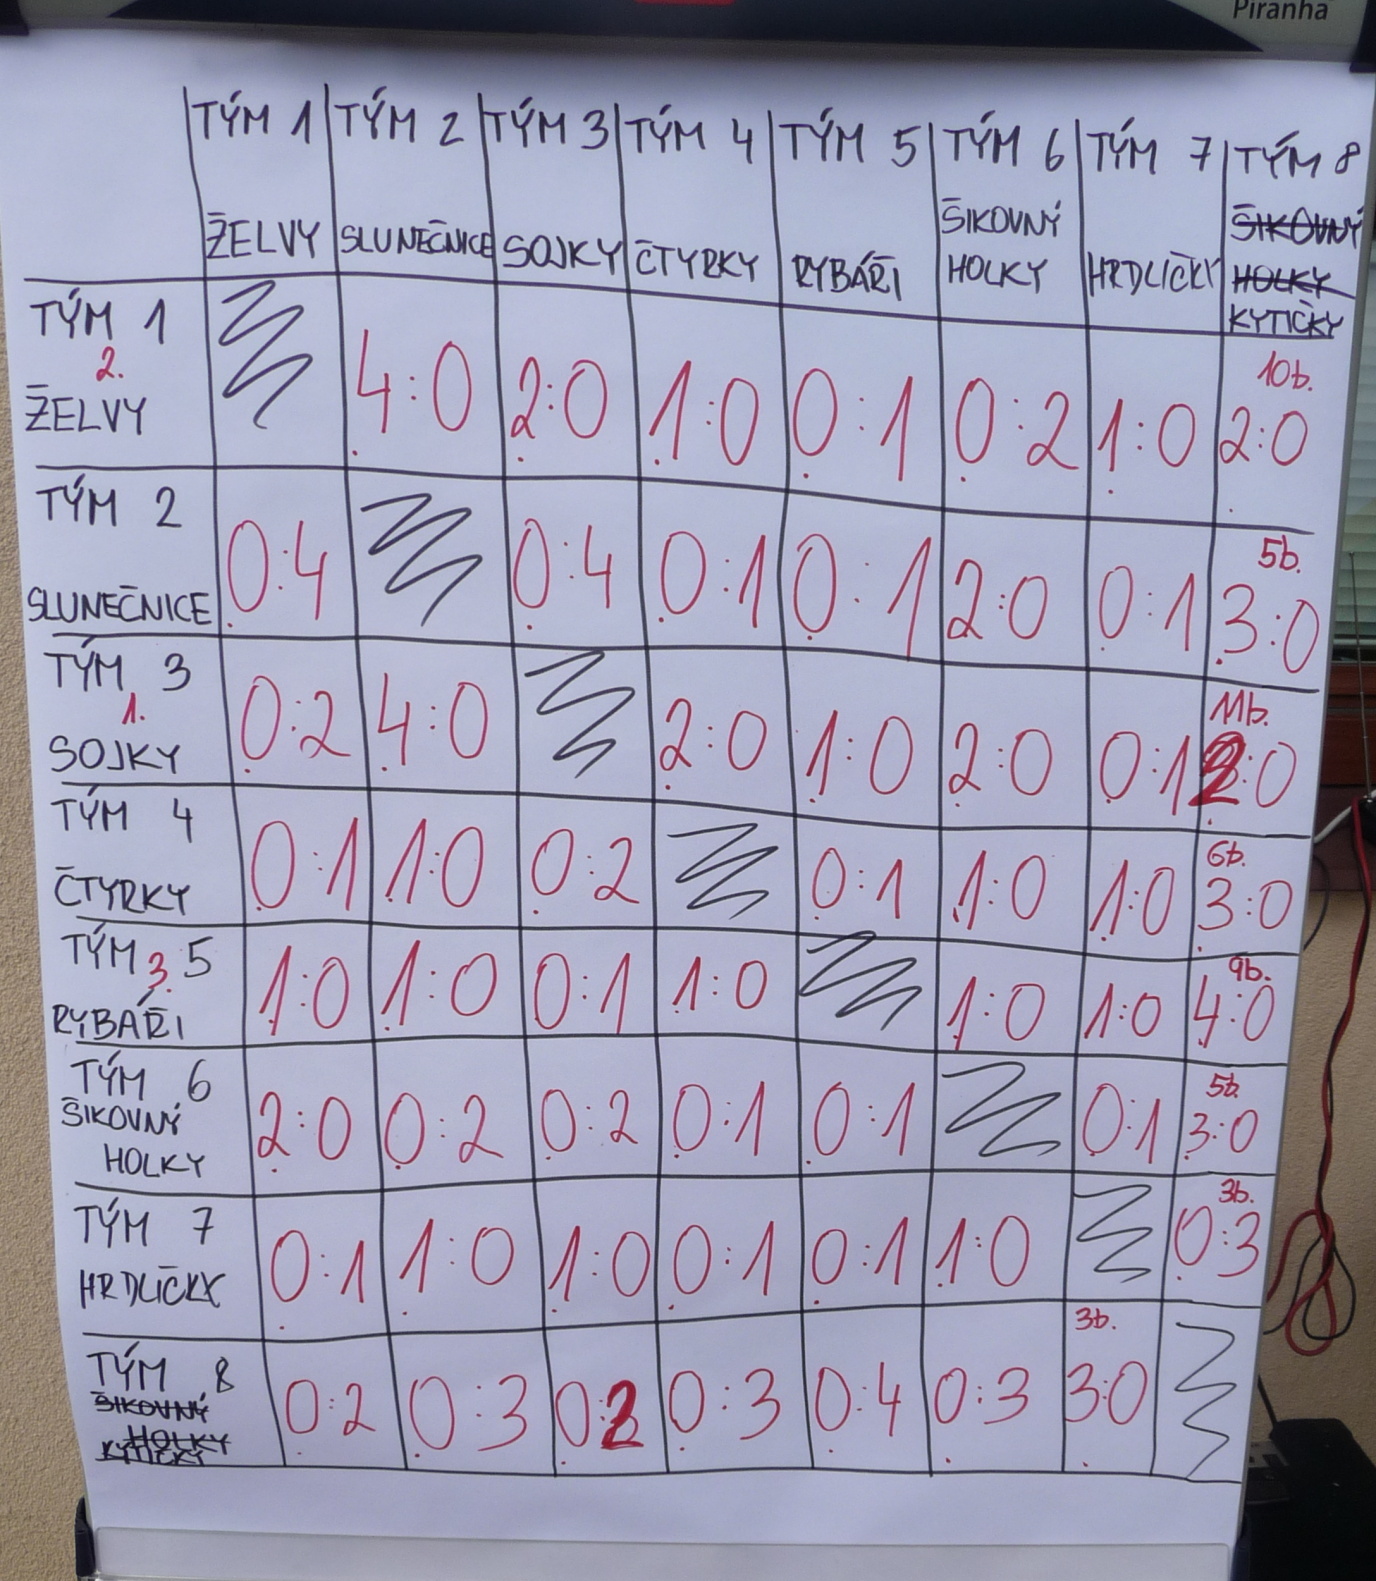 Piranha
TÝM 1 TÝM 2 TÝM 3 TÝM 4 TÝM 5 TÝM 6 TÝM 7 TÝM 8
ŽELVY SLUNEČNICE SOJKY ČTYRKY RYBÁŘI ŠIKOVNÝ HOLKY HRDLIČKY ŠIKOVNÝ HOLKY KYTIČKY
TÝM 1
2.
ŽELVY
4:0 2:0 1:0 0:1 0:2 1:0 2:0
10b.
TÝM 2
SLUNEČNICE
0:4 0:4 0:1 0:1 2:0 0:1 3:0
5b.
TÝM 3
1.
SOJKY
0:2 4:0 2:0 1:0 2:0 0:1 2:0
11b.
TÝM 4
ČTYRKY
0:1 1:0 0:2 0:1 1:0 1:0 3:0
6b.
TÝM 5
3.
RYBÁŘI
1:0 1:0 0:1 1:0 1:0 1:0 4:0
9b.
TÝM 6
ŠIKOVNÝ
HOLKY
2:0 0:2 0:2 0:1 0:1 0:1 3:0
5b.
TÝM 7
HRDLIČKY
0:1 1:0 1:0 0:1 0:1 1:0 0:3
3b.
TÝM 8
ŠIKOVNÝ
HOLKY
KYTIČKY
0:2 0:3 0:2 0:3 0:4 0:3 3:0
3b.